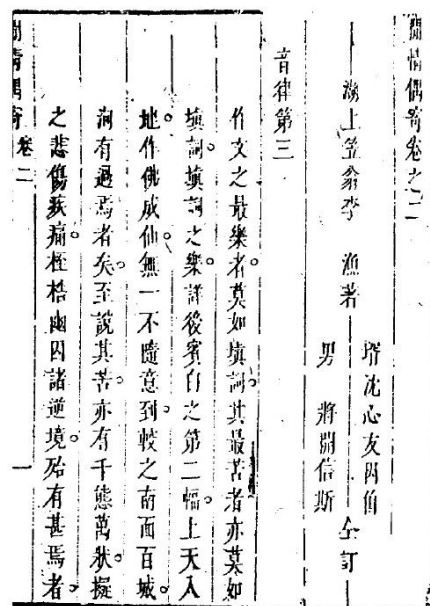 閒情偶寄卷之二
湖上笠翁李 漁著
壻沈心友因伯
男 將開信斯
仝訂
音律第三
作文之最樂者。莫如填詞。其最苦者亦莫如
填詞。填詞之樂。詳後賓白之第二幅。上天入
地。作佛成仙。無一不隨意到。較之南面百城。
洞有過焉者矣。至說其苦。亦有千態萬狀。擬
之悲傷疾痛。桎梏幽囚諸逆境。殆有甚焉者。
閒情偶寄 卷二 一